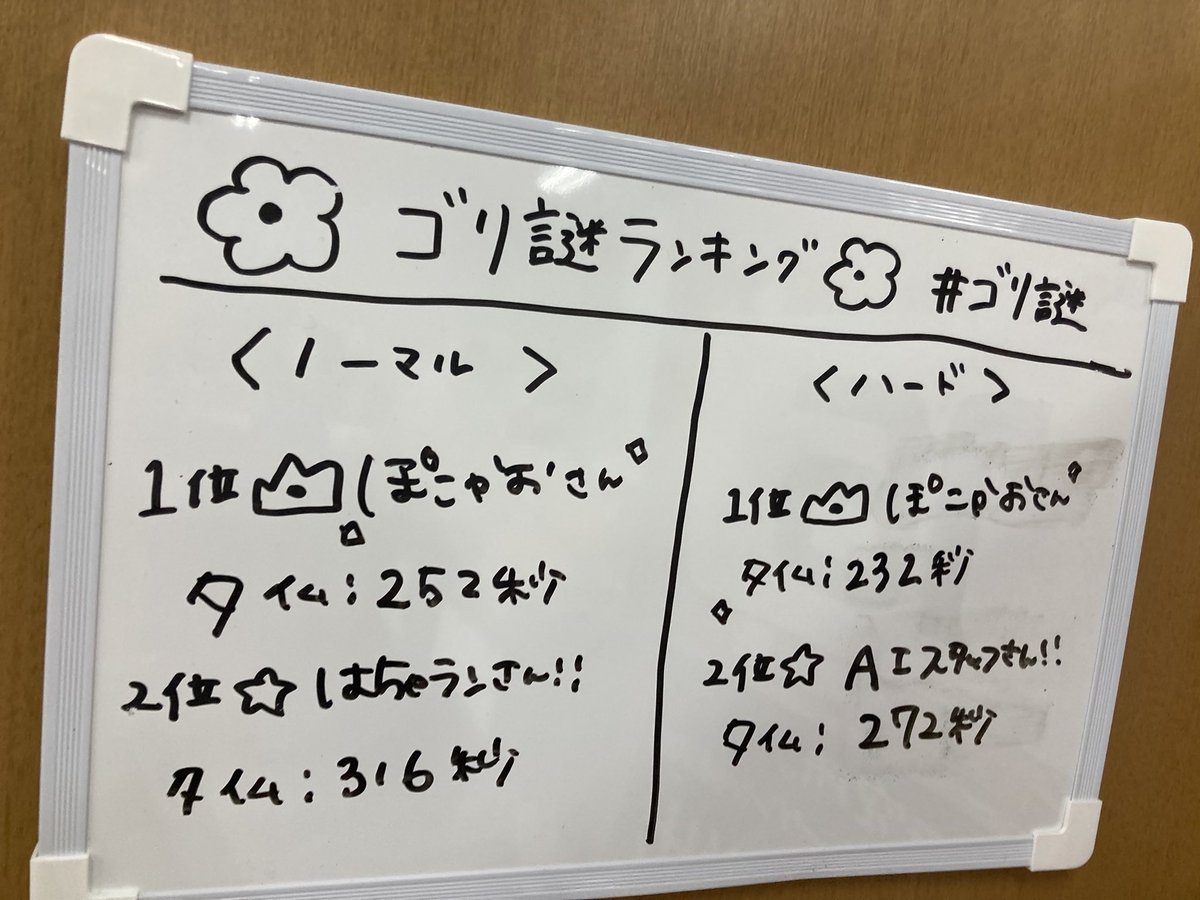 ゴリ謎ランキング #ゴリ謎
<ノーマル>
1位 ぽにゃおさん
タイム:252秒
2位☆ さん!!
タイム:316秒
<ハード>
1位 ぽにゃおさん
タイム:232秒
2位☆ AIスタッフさん!!
タイム:272秒